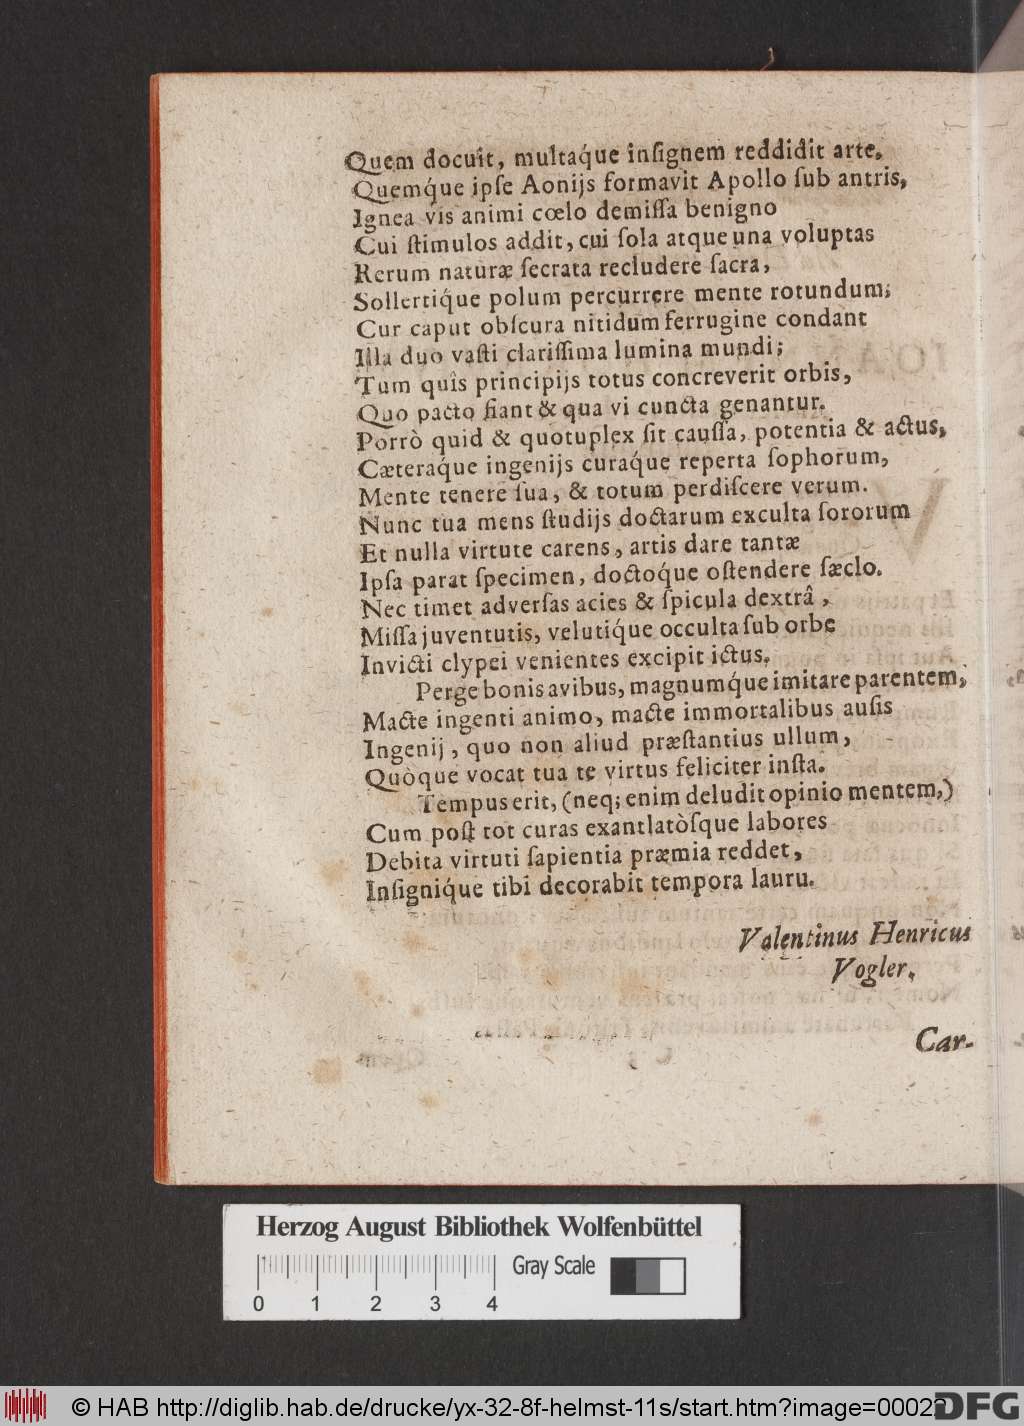 Quem docuit, multáque inſignem reddidit arte.
Quemque ipſe Aonijs formavit Apollo ſub antris,
Ignea vis animi cœlo demiſſa benigno
Cui ſtimulos addit, cui ſola atque una voluptas
Rerum naturæ ſecrata recludere ſacra,
Sollertiq́ue polum percurrere mente rotundum;
Cur caput obſcura nitidum ferrugine condant
Illa duo vaſti clariſſima lumina mundi;
Tum quîs principijs totus concreverit orbis,
Quo pacto fiant & qua vi cuncta genantur.
Porrò quid & quotuplex ſit cauſſa, potentia & actus,
Cæteraq́ue ingenijs curaq́ue reperta ſophorum,
Mente tenere ſua, & totum perdiſcere verum.
Nunc tua mens ſtudijs doctarum exculta ſororum
Et nulla virtute carens, artis dare tantæ
Ipſa parat ſpecimen, doctoq́ue oſtendere ſæclo.
Nec timet adverſas acies & ſpicula dextrâ,
Miſſa juventutis, velutiq́ue occulta ſub orbe
Invicti clypei venientes excipit ictus.
Perge bonis avibus, magnumq́ue imitare parentem,
Macte ingenti animo, macte immortalibus auſis
Ingenij, quo non aliud præſtantius ullum,
Quòque vocat tua te virtus feliciter inſta.
Tempus erit, (neq; enim deludit opinio mentem,)
Cum poſt tot curas exantlatòſque labores
Debita virtuti ſapientia præmia reddet,
Inſigniq́ue tibi decorabit tempora lauru.
Valentinus Henricus
Vogler.
Car-
Herzog August Bibliothek Wolfenbüttel
Gray Scale
0 1 2 3 4
© HAB http://diglib.hab.de/drucke/yx-32-8f-helmst-11s/start.htm?image=00022
DFG